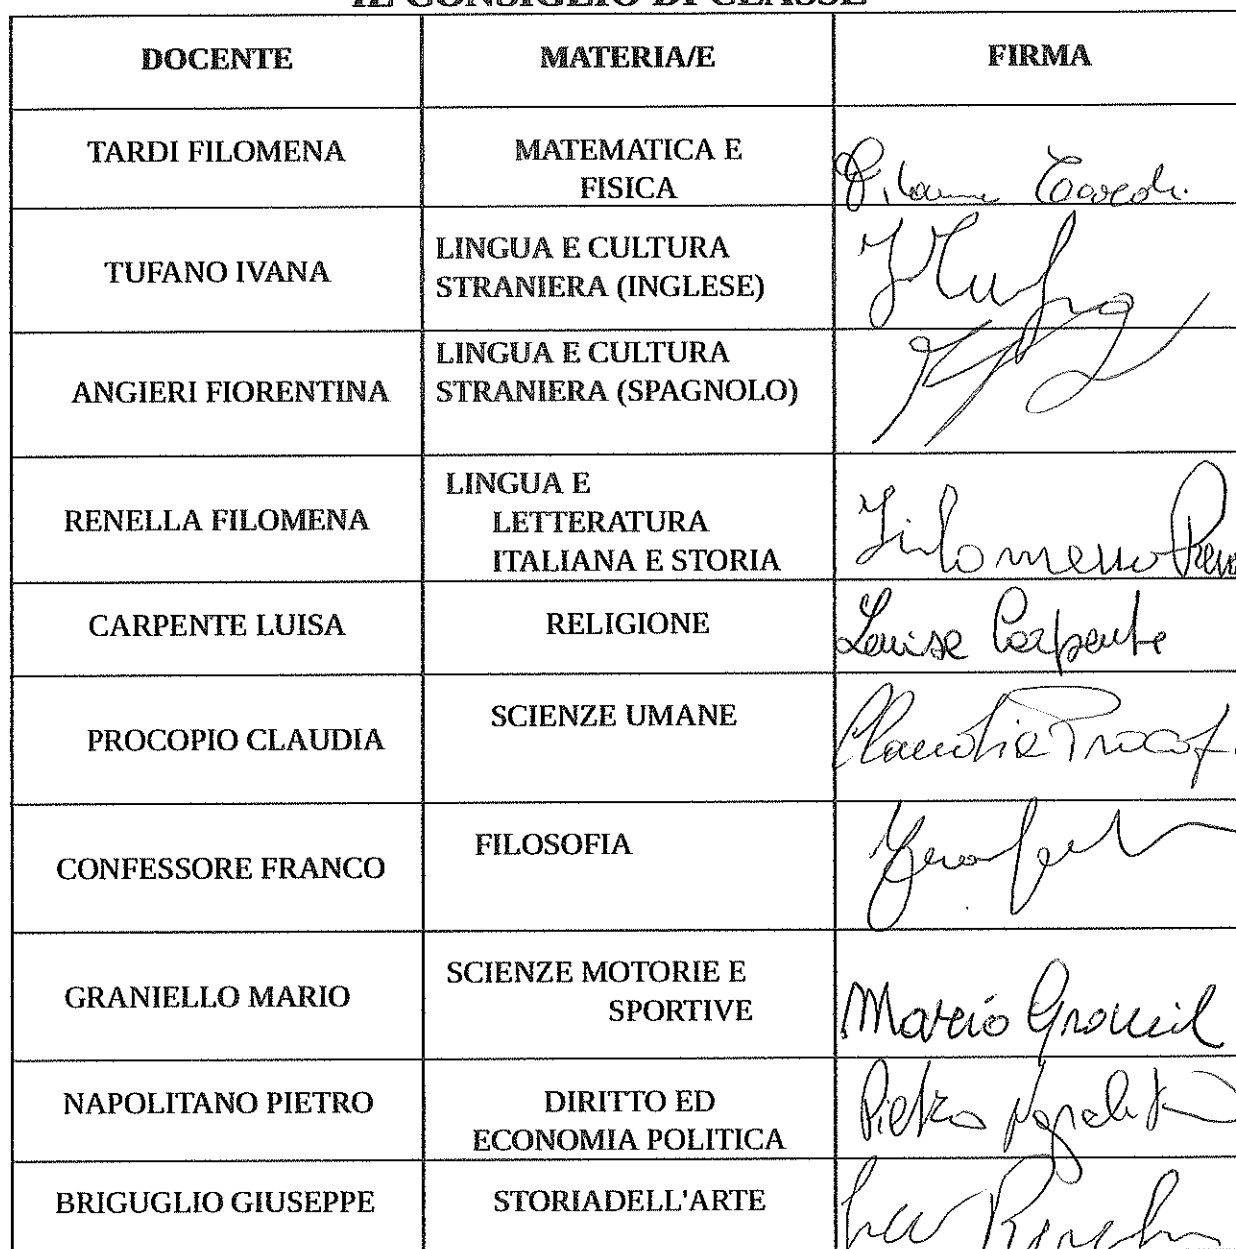 IL CONSIGLIO DI CLASSE
DOCENTE MATERIA/E FIRMA
TARDI FILOMENA MATEMATICA E
FISICA
TUFANO IVANA LINGUA E CULTURA
STRANIERA (INGLESE)
ANGIERI FIORENTINA LINGUA E CULTURA
STRANIERA (SPAGNOLO)
RENELLA FILOMENA LINGUA E
LETTERATURA
ITALIANA E STORIA
CARPENTE LUISA RELIGIONE Luisa Carpente
PROCOPIO CLAUDIA SCIENZE UMANE Claudia
CONFESSORE FRANCO FILOSOFIA
GRANIELLO MARIO SCIENZE MOTORIE E
SPORTIVE Mario
NAPOLITANO PIETRO DIRITTO ED
ECONOMIA POLITICA Pietro
BRIGUGLIO GIUSEPPE STORIADELL'ARTE